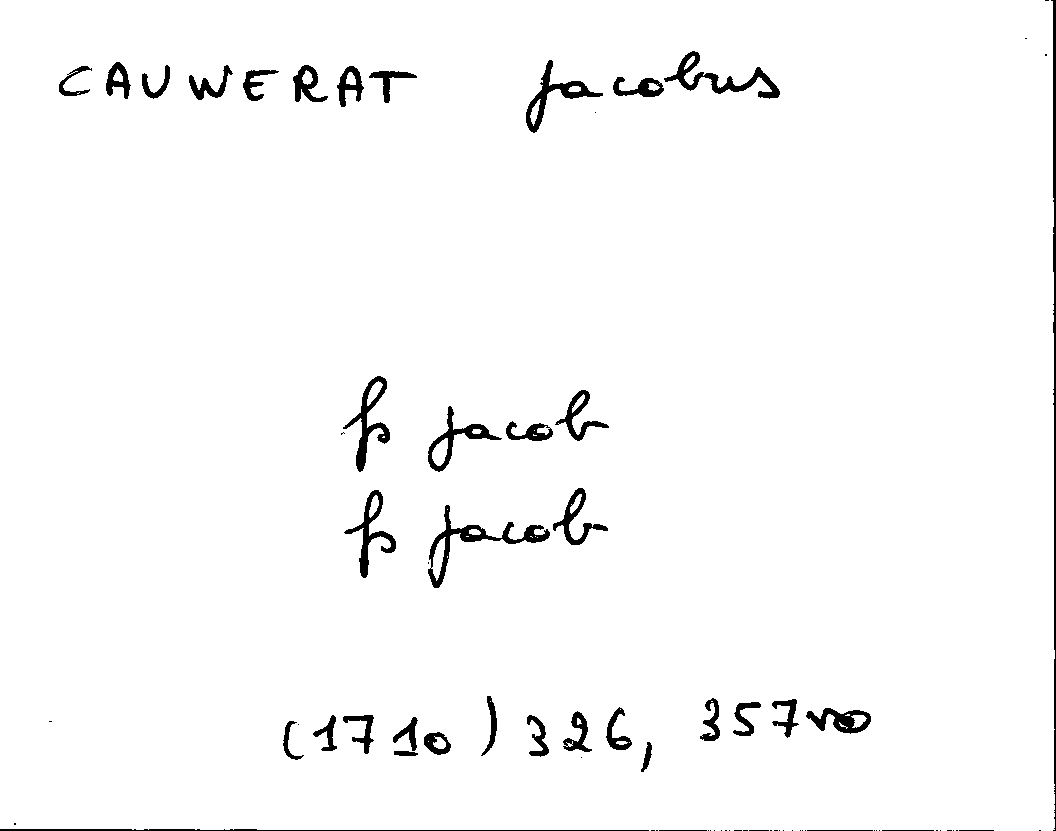 CAUWERAT Jacobus
fs Jacob
fs Jacob
(1710) 326, 357vo